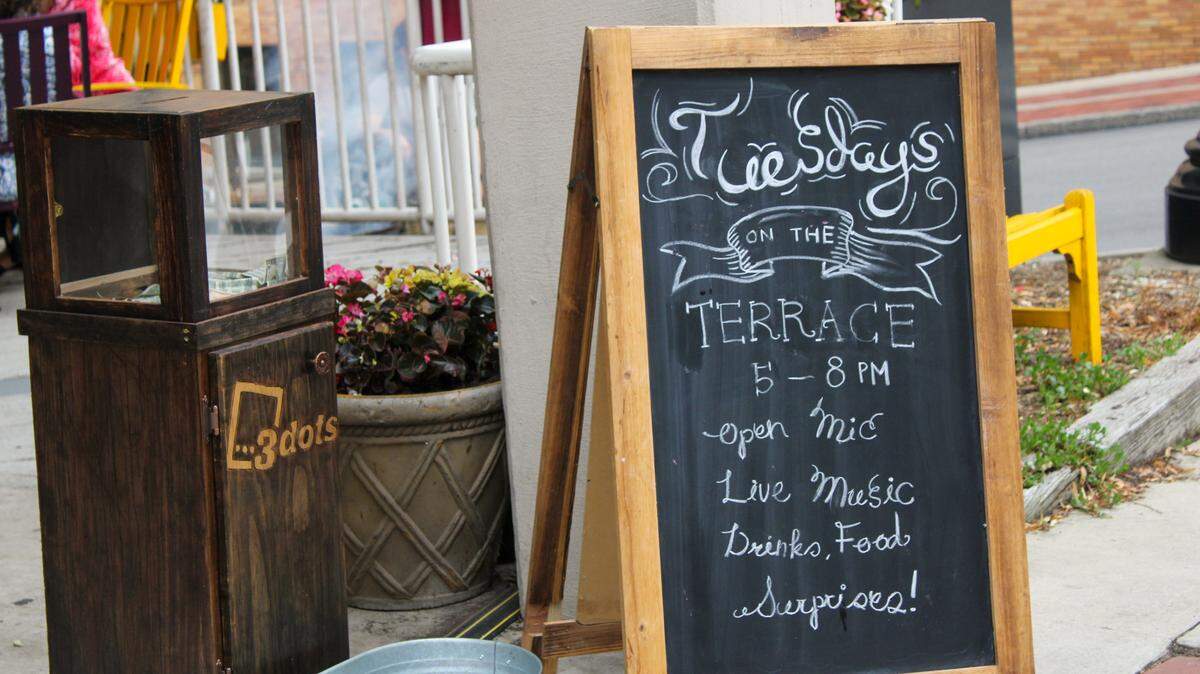 Tuesdays
ON THE
TERRACE
5 - 8 PM
open Mic
Live Music
Drinks, Food
Surprises!
...3dots